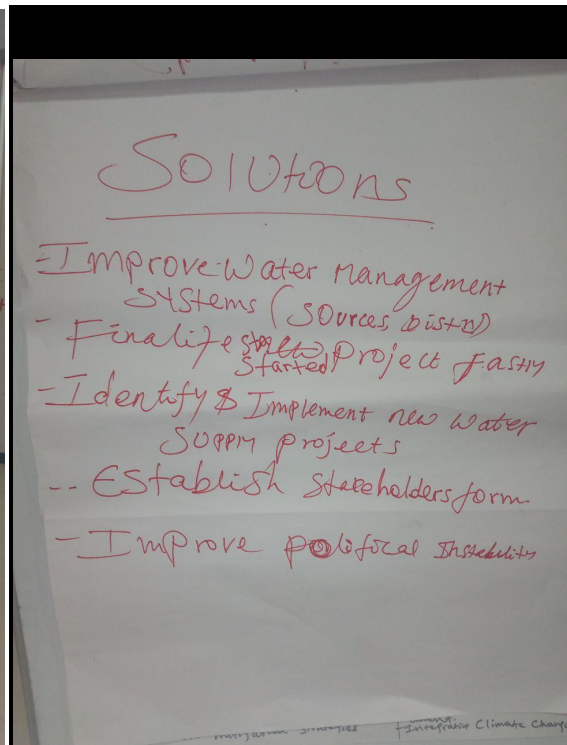 Solutions
- Improve water management
systems (sources, Distn)
- Finalife started project fastly
- Identify & Implement new water
supply projects
-- Establish stakeholders form
- Improve political Instability
mitigation strategies
+ Integrative Climate Change